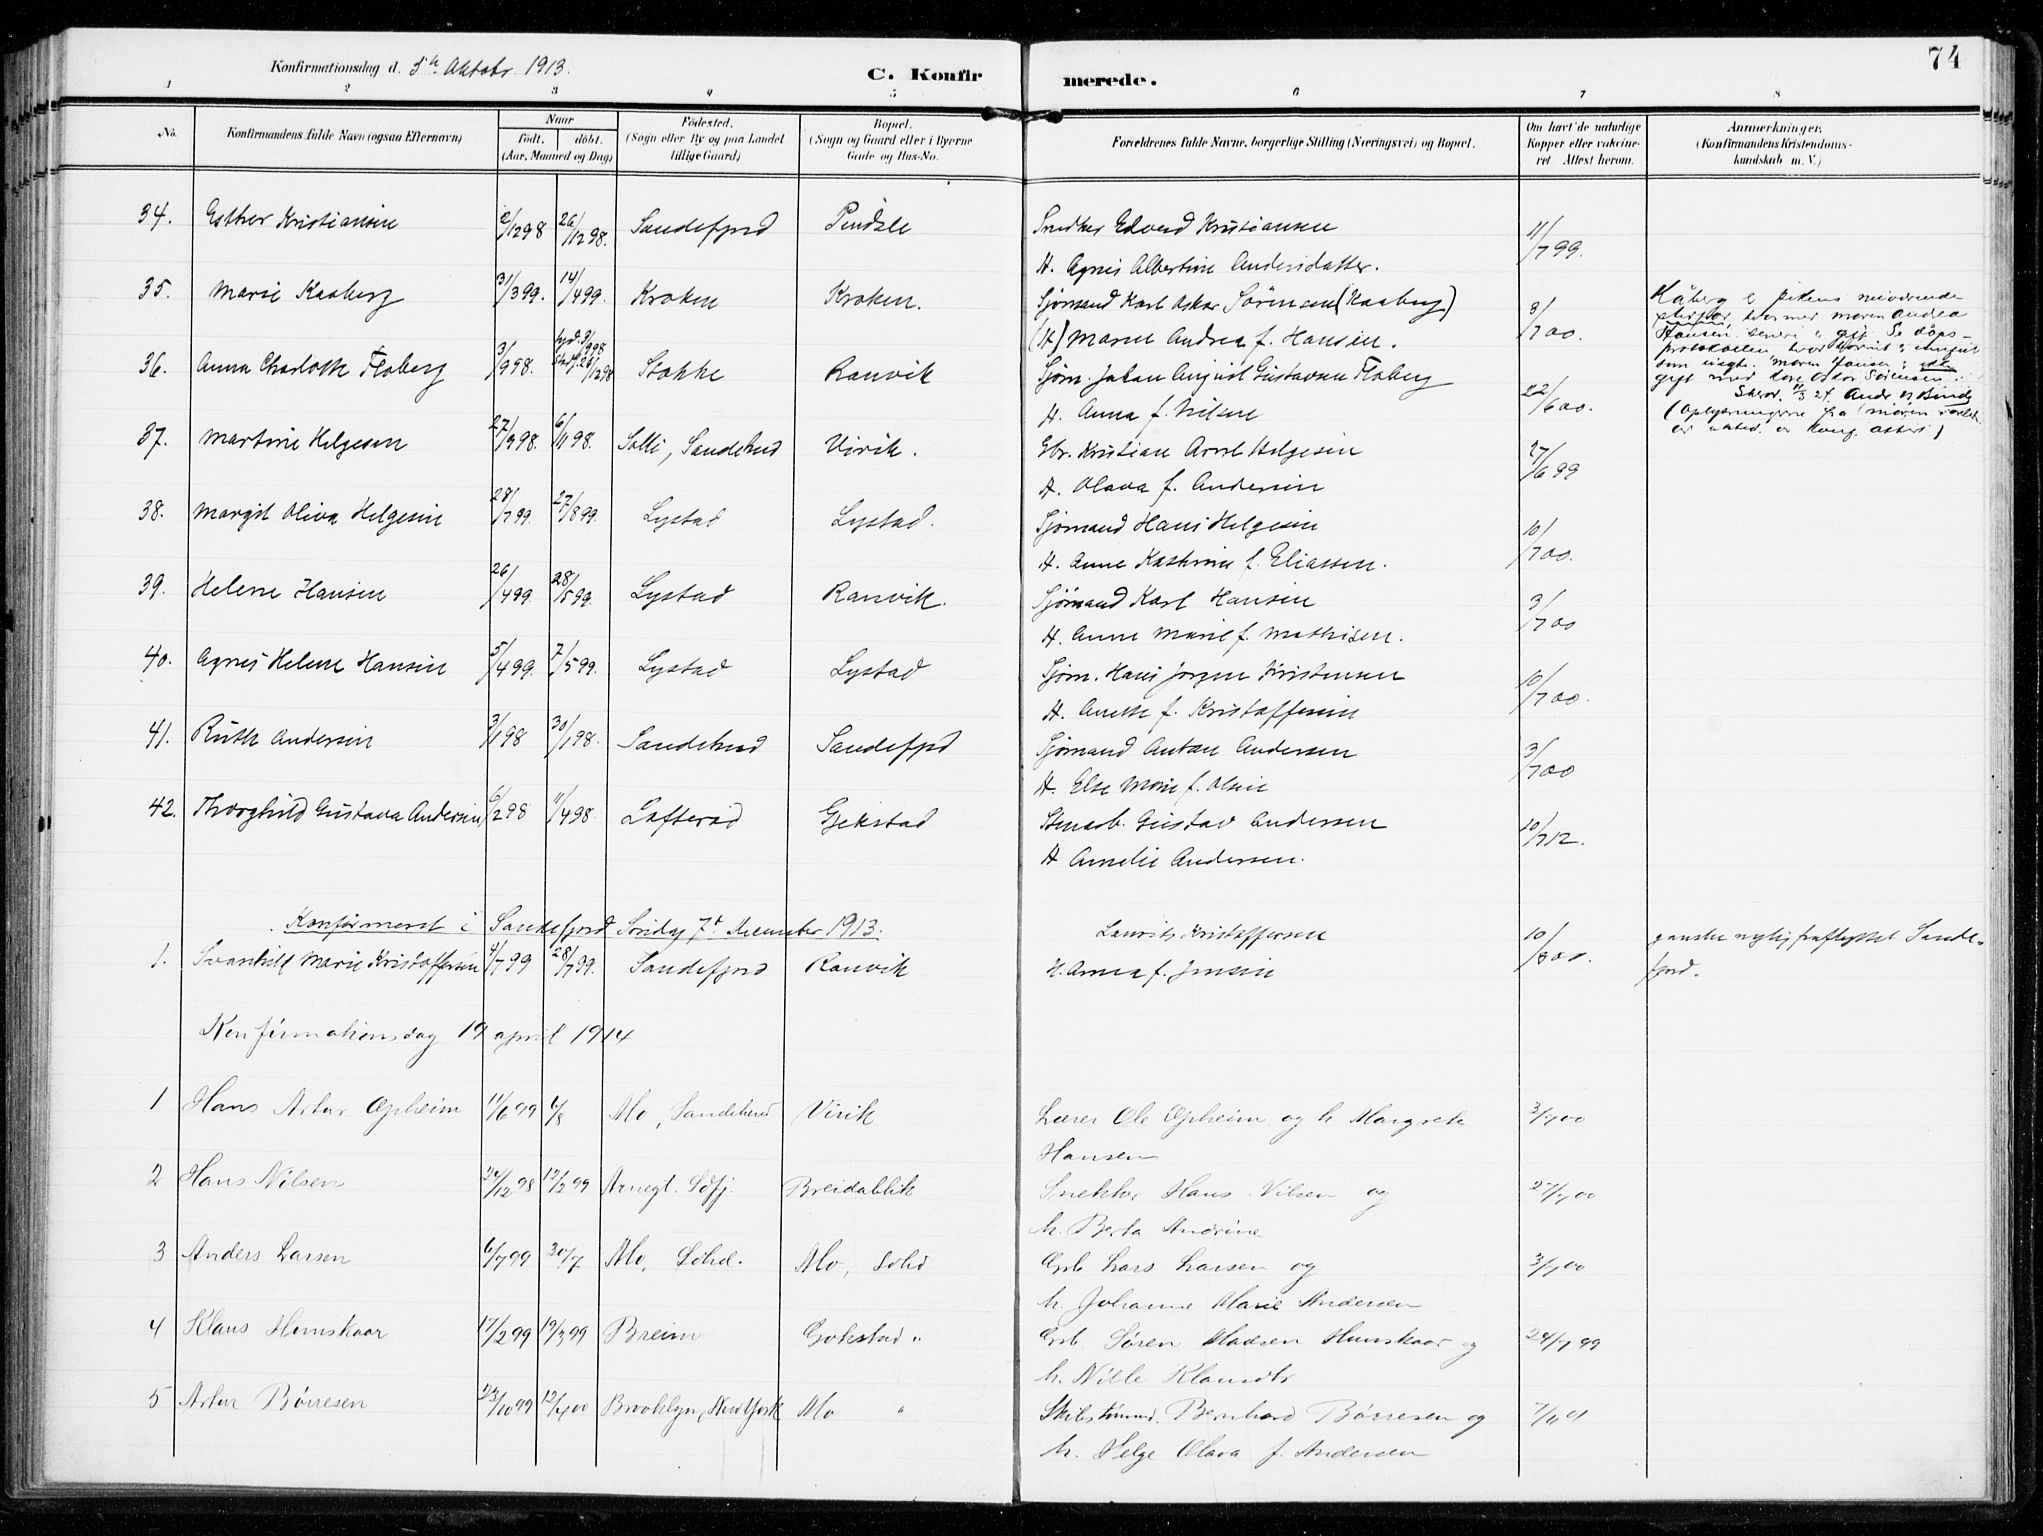 Konfirmationsdag d. 5te Oktobr 1913.
C. Konfirmerede.
74
1 2 3 4 5 6 7 8
No.
Konfirmandens fulde Navn (ogsaa Efternavn)
Naar
født. døbt.
(Aar, Maaned og Dag)
Fødested.
(Sogn eller By og paa Landet
tillige Gaard)
Bopæl.
(Sogn og Gaard eller i Byerne
Gade og Hus-No.
Forældrenes fulde Navne, borgerlige Stilling (Næringsvei) og Bopæl.
Om havt de naturlige
Kopper eller vakcine-
ret Attest herom.
Anmerkninger.
(Konfirmandens Kristendoms-
kundskab m. V.)
34. Esther Kristiansen 2/12 98 26/12 98. Sandefjord Pindsle Snedker Edvard Kristiansen 11/7 99.
H. Agnes Albertine Andersdatter.
35. Marie Kaaberg 31/3 99. 14/4 99. Kroken Kroken. Sjømand Karl Oskar Sørensen (Kaaberg) 3/7 00.
(H) Maren Andrea f. Hansen.
Håberg er pikens nuværende
36. Anna Charlotte Floberg 3/9 98. Stokke Ranvik Sjøm. Johan August Gustavsen Floberg 22/6 00.
H. Anna f. Nilsen
gift med Karl Oskar Sørensen.
37. Martine Helgesen 27/9 98. 6/11 98. Solli, Sandeherd Virik. Gbr. Kristian Arnt Helgesen 27/6 99
H. Olava f. Andersen
38. Margit Oliva Helgesen 28/7 99. 27/8 99. Lystad Lystad. Sjømand Hans Helgesen 10/7 00.
H. Anne Kathrine f. Eliassen.
39. Helene Hansen 26/4 99. 28/5 99. Lystad Ranvik. Sjømand Karl Hansen 3/7 00
H. Anne Marie f. Mathisen.
40. Agnes Helene Hansen 5/4 99. 7/5 99. Lystad Lystad Sjøm. Hans Jørgen Kristensen 10/7 00.
H. Anette f. Kristoffersen
41. Ruth Andersen 3/1 98 30/1 98. Sandeherd Sandefjd Sjømand Anton Andersen 3/7 00
H. Else Marie f. Olsen
42. Thorghild Gustava Andersen 6/2 98 11/4 98. Lofterød Gjekstad Stenarb. Gustav Andersen 10/7 12.
H Amelie Andersen.
Konfirmeret i Sandefjord Søndag 7de December 1913.
1. Svanhild Marie Kristoffersen 4/7 99 28/7 99. Sandefjord Ranvik Laurits Kristoffersen 10/8 00. ganske nylig fraflyttet Sande-
H. Anna f. Jensen fjord.
Konfirmationsdag 19 april 1914
1 Hans Artur Opheim 11/6 99 6/8 Mo, Sandeherd Virik Lærer Ole Opheim og h. Margrete 3/7 00
Hansen
2 Hans Nilsen 24/12 98 12/2 99 Arnegt. Sdfj. Breidablik Snekker Hans Nilsen og 27/7 00
h. Berta Andrine
3 Anders Larsen 6/7 99 30/7 Mo, Sdhd. Mo, Sdhd Grb Lars Larsen og 3/7 00
h. Johanne Marie Andersen
4 Klaus Hemskaar 17/2 99 19/3 99 Breim Gokstad " Grb. Søren Madsen Humskaar og 24/7 99
h. Nille Klausdtr
5 Artur Børresen 23/10 99 12/4 00 Brooklyn, New York Mo " Skibstømmd. Bernhard Børresen og
h. Helge Olava f. Andersen